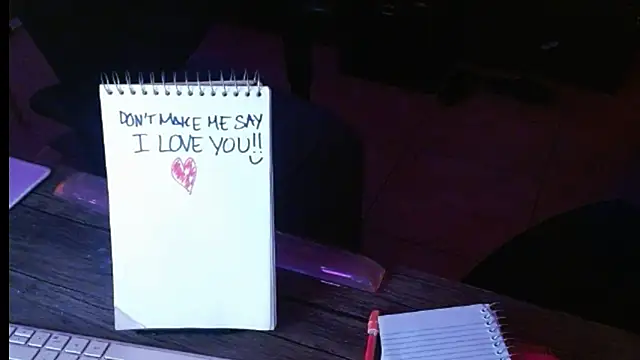 DON'T MAKE ME SAY
I LOVE YOU!!